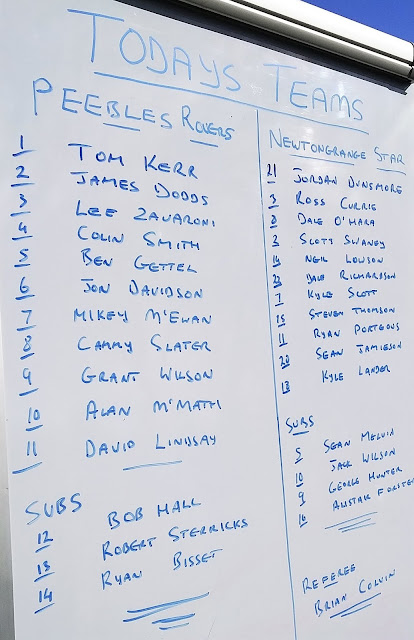 TODAYS TEAMS
PEEBLES ROVERS
1 TOM KERR
2 JAMES DODDS
3 LEE ZAVARONI
4 COLIN SMITH
5 BEN GETTEL
6 JON DAVIDSON
7 MIKEY M'EWAN
8 CAMMY SLATER
9 GRANT WILSON
10 ALAN M'MATH
11 DAVID LINDSAY
SUBS
12 BOB HALL
13 ROBERT STERRICKS
14 RYAN BISSET
NEWTONGRANGE STAR
21 JORDAN DUNSMORE
3 ROSS CURRIE
8 DALE O'HARA
SCOTT SWANEY
14 NEIL LOWSON
22 DALE RICHARDSON
7 KYLE SCOTT
15 STEVEN THOMSON
11 RYAN PORTEOUS
20 SEAN JAMIESON
KYLE LANDER
SUBS
5 SEAN MELVIN
10 JACK WILSON
9 GEORGE HUNTER
16 FORSTER
REFEREE
BRIAN COLVIN